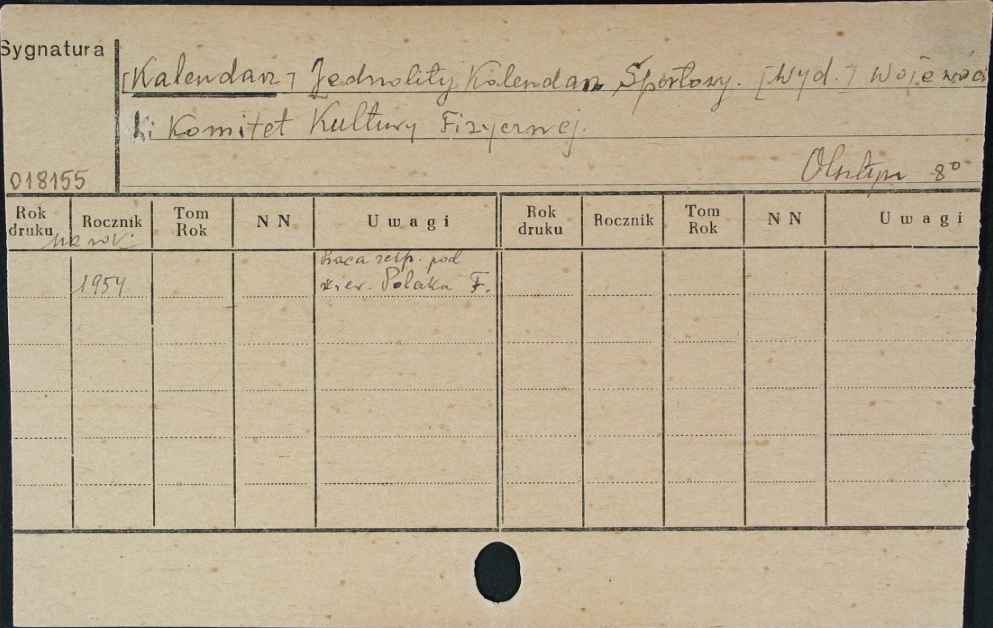 Sygnatura
[Kalendarz] Jednolity Kalendarz Sportowy. [Wyd.] Wojewódz
ki Komitet Kultury Fizycznej.
Olsztyn 8°
018155
Rok druku Rocznik Tom Rok NN Uwagi Rok druku Rocznik Tom Rok NN Uwagi
na rok
1954 Praca zesp. pod
kier. Polaka F.